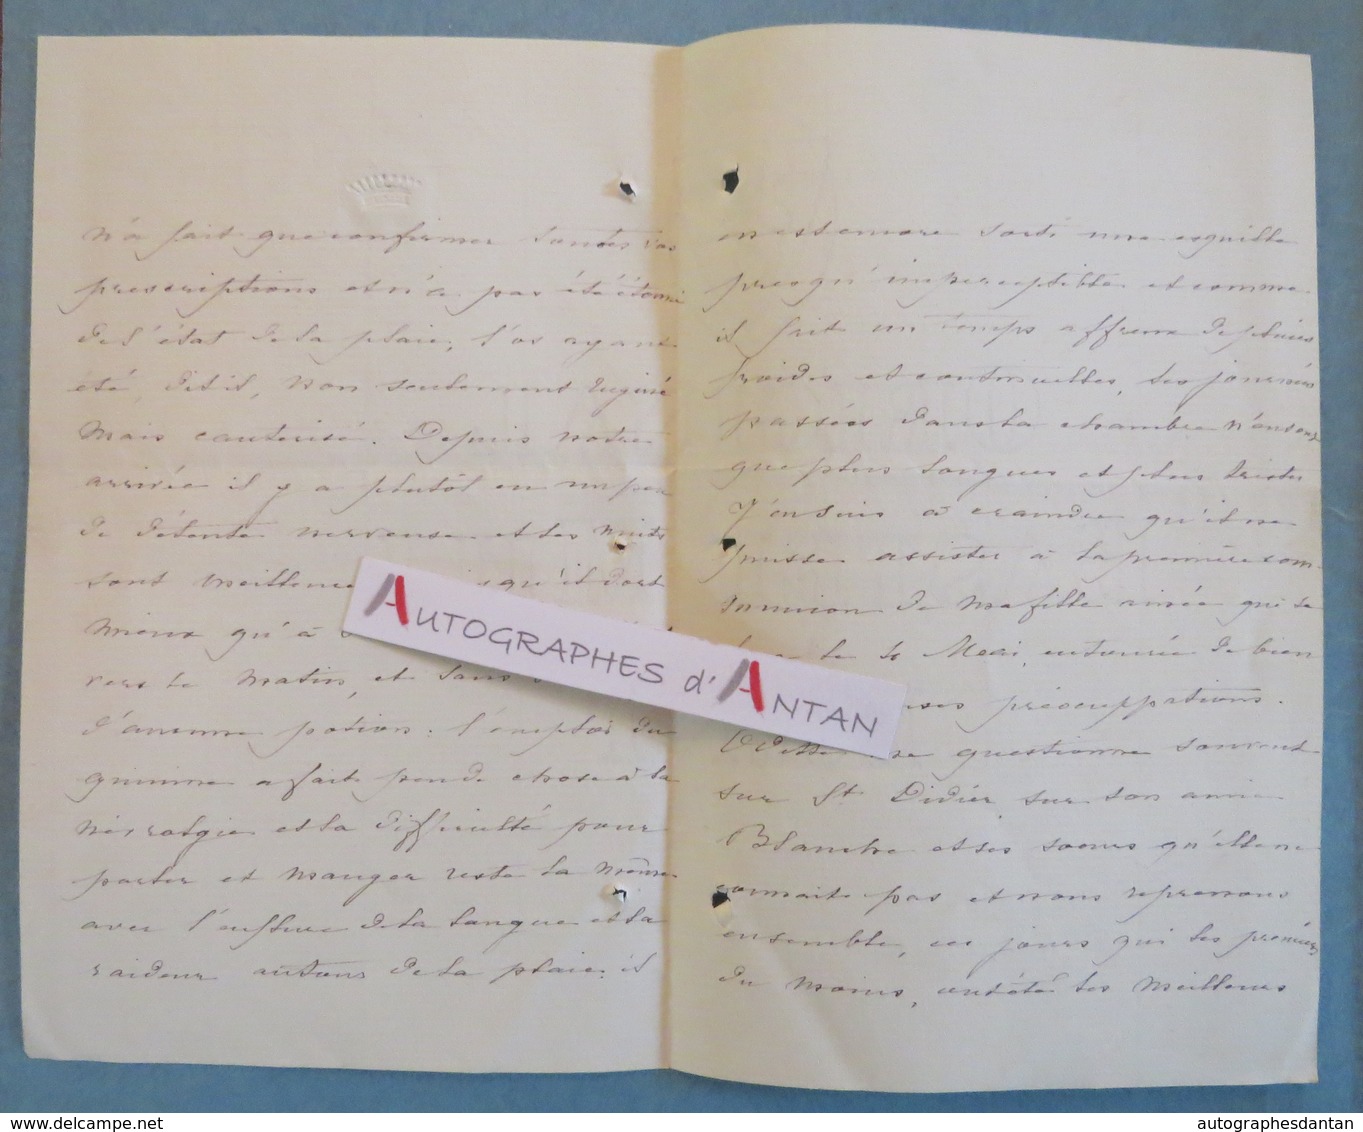 n'a fait que confirmer toutes vos
prescriptions et n'a pas été étonné
de l'état de la plaie, l'os ayant
été, dit il, non seulement ruginé
mais cauterisé. Depuis notre
arrivée il y a plutôt eu un peu
de détente nerveuse et les nuits
sont meilleures qu'il dort
mieux qu'à
vers le matin, et sans
d'aucune potion : l'emploi du
quinine a fait peu de chose à la
névralgie et la difficulté pour
parler et manger reste la même
avec l'enflure de la langue et la
raideur autour de la plaie. il
en est encore sorti une esquille
presqu'imperceptible et comme
il fait un temps affreux de pluies
froides et continuelles, les journées
passées dans la chambre n'en sont
que plus longues et plus tristes
J'en suis à craindre qu'il ne
puisse assister à la première com-
munion de ma fille ainée qui se
le 4 Mai, entourée de bien
préocuppations.
Odette me questionne souvent
sur St Didier sur son amie
Blanche et ses soeurs qu'elle ne
connait pas et nous reprenons
ensemble, ces jours qui les premiers
du moins, ont été les meilleurs
AUTOGRAPHES d'ANTAN
autographesdantan